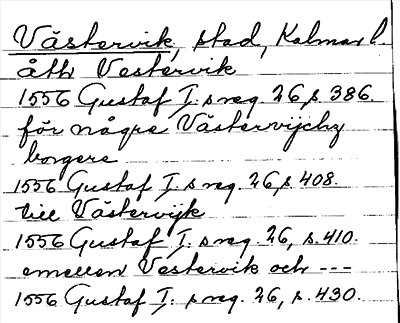 Västervik, stad, Kalmar l.
åth Vestervik
1556 Gustaf I:s reg. 26, s. 386.
för någre Västervijchz
borgere
1556 Gustaf I:s reg. 26, s. 408.
till Västervijk
1556 Gustaf I:s reg. 26, s. 410.
emellen Vestervik och ---
1556 Gustaf I:s reg. 26, s. 430.